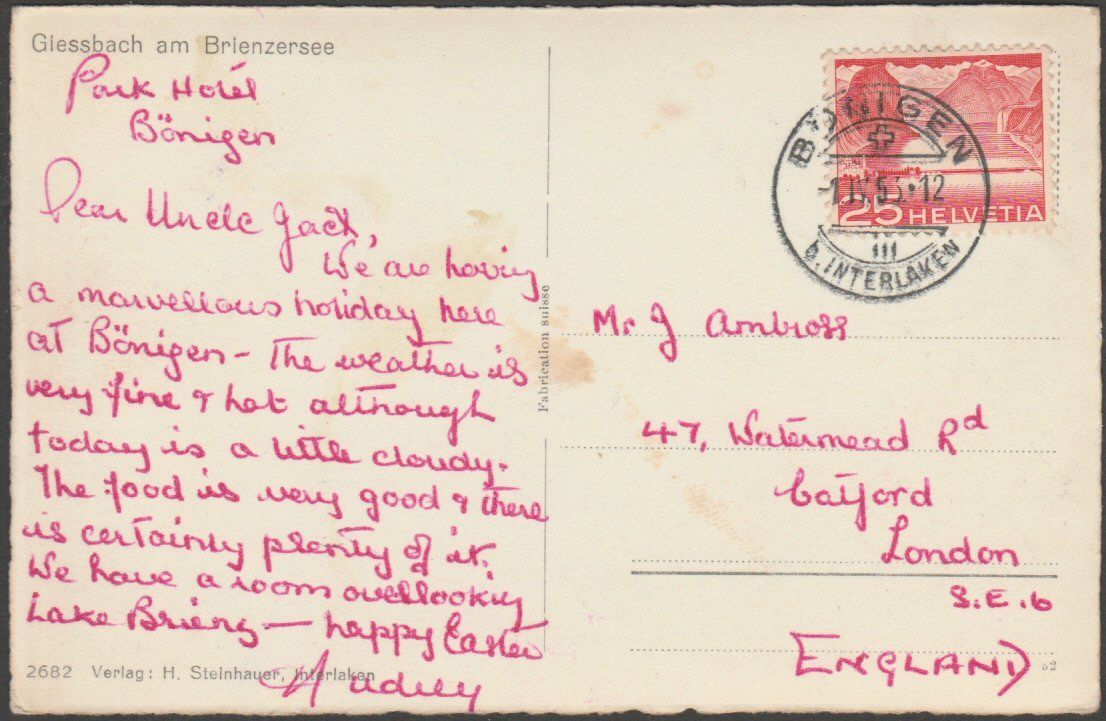 Giessbach am Brienzersee
Park Hotel
Bönigen
Dear Uncle Jack,
We are having
a marvellous holiday here
at Bönigen - The weather is
very fine & hot although
today is a little cloudy.
The food is very good & there
is certainly plenty of it.
We have a room overlooking
Lake Brienz — happy Easter
Audrey
2682 Verlag: H. Steinhauer, Interlaken
Fabrication suisse
BÖNIGEN
-1.IV.53.12
III
b. INTERLAKEN
25 HELVETIA
Mr J Ambross
47, Watermead Rd
Catford
London
S.E.6
ENGLAND
52